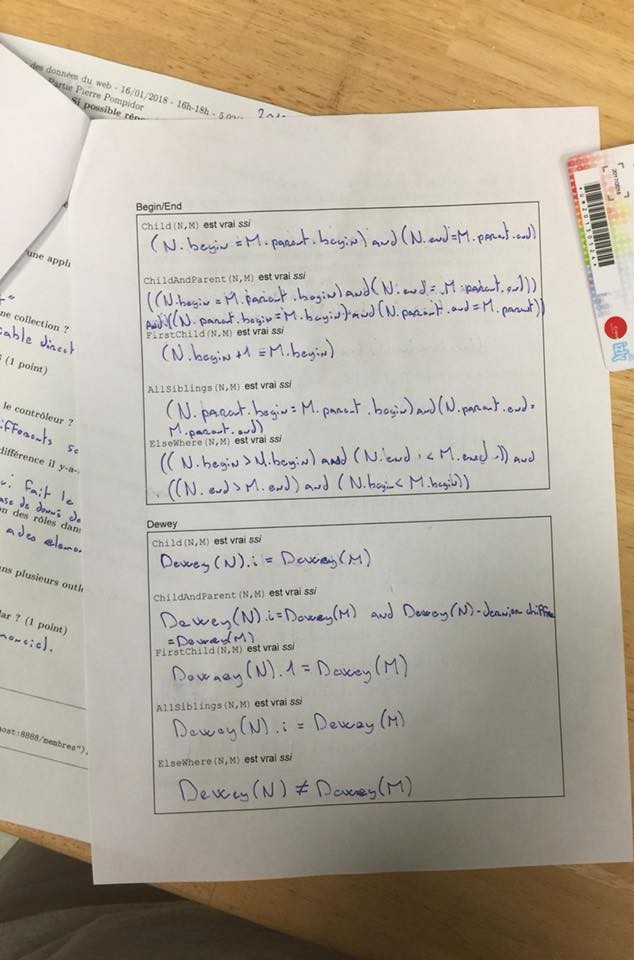 des données du web - 16/01/2018 - 16h-18h - 5.
Partie Pierre Pompidor
Si possible
une appli
ne collection ?
able direct
(1 point)
le contrôleur ?
ifferents
différence il y-a-
fait le
on des rôles dans
ns plusieurs
lar ? (1 point)
ost:8888/membres")
Begin/End
Child(N,M) est vrai ssi
(N.begin = M.parent.begin) and (N.end = M.parent.end)
ChildAndParent(N,M) est vrai ssi
((N.begin = M.parent.begin) and (N.end = M.parent.end))
and ((N.parent.begin = M.begin) and (N.parent.end = M.parent))
FirstChild(N,M) est vrai ssi
(N.begin + 1 = M.begin)
AllSiblings(N,M) est vrai ssi
(N.parent.begin = M.parent.begin) and (N.parent.end =
M.parent.end)
ElseWhere(N,M) est vrai ssi
((N.begin > M.begin) and (N.end < M.end)) and
((N.end > M.end) and (N.begin < M.begin))
Dewey
Child(N,M) est vrai ssi
Dewey(N).i = Dewey(M)
ChildAndParent(N,M) est vrai ssi
Dewey(N).i = Dewey(M) and Dewey(N) - dernier chiffre
= Dewey(M)
FirstChild(N,M) est vrai ssi
Dewey(N).1 = Dewey(M)
AllSiblings(N,M) est vrai ssi
Dewey(N).i = Dewey(M)
ElseWhere(N,M) est vrai ssi
Dewey(N) ≠ Dewey(M)